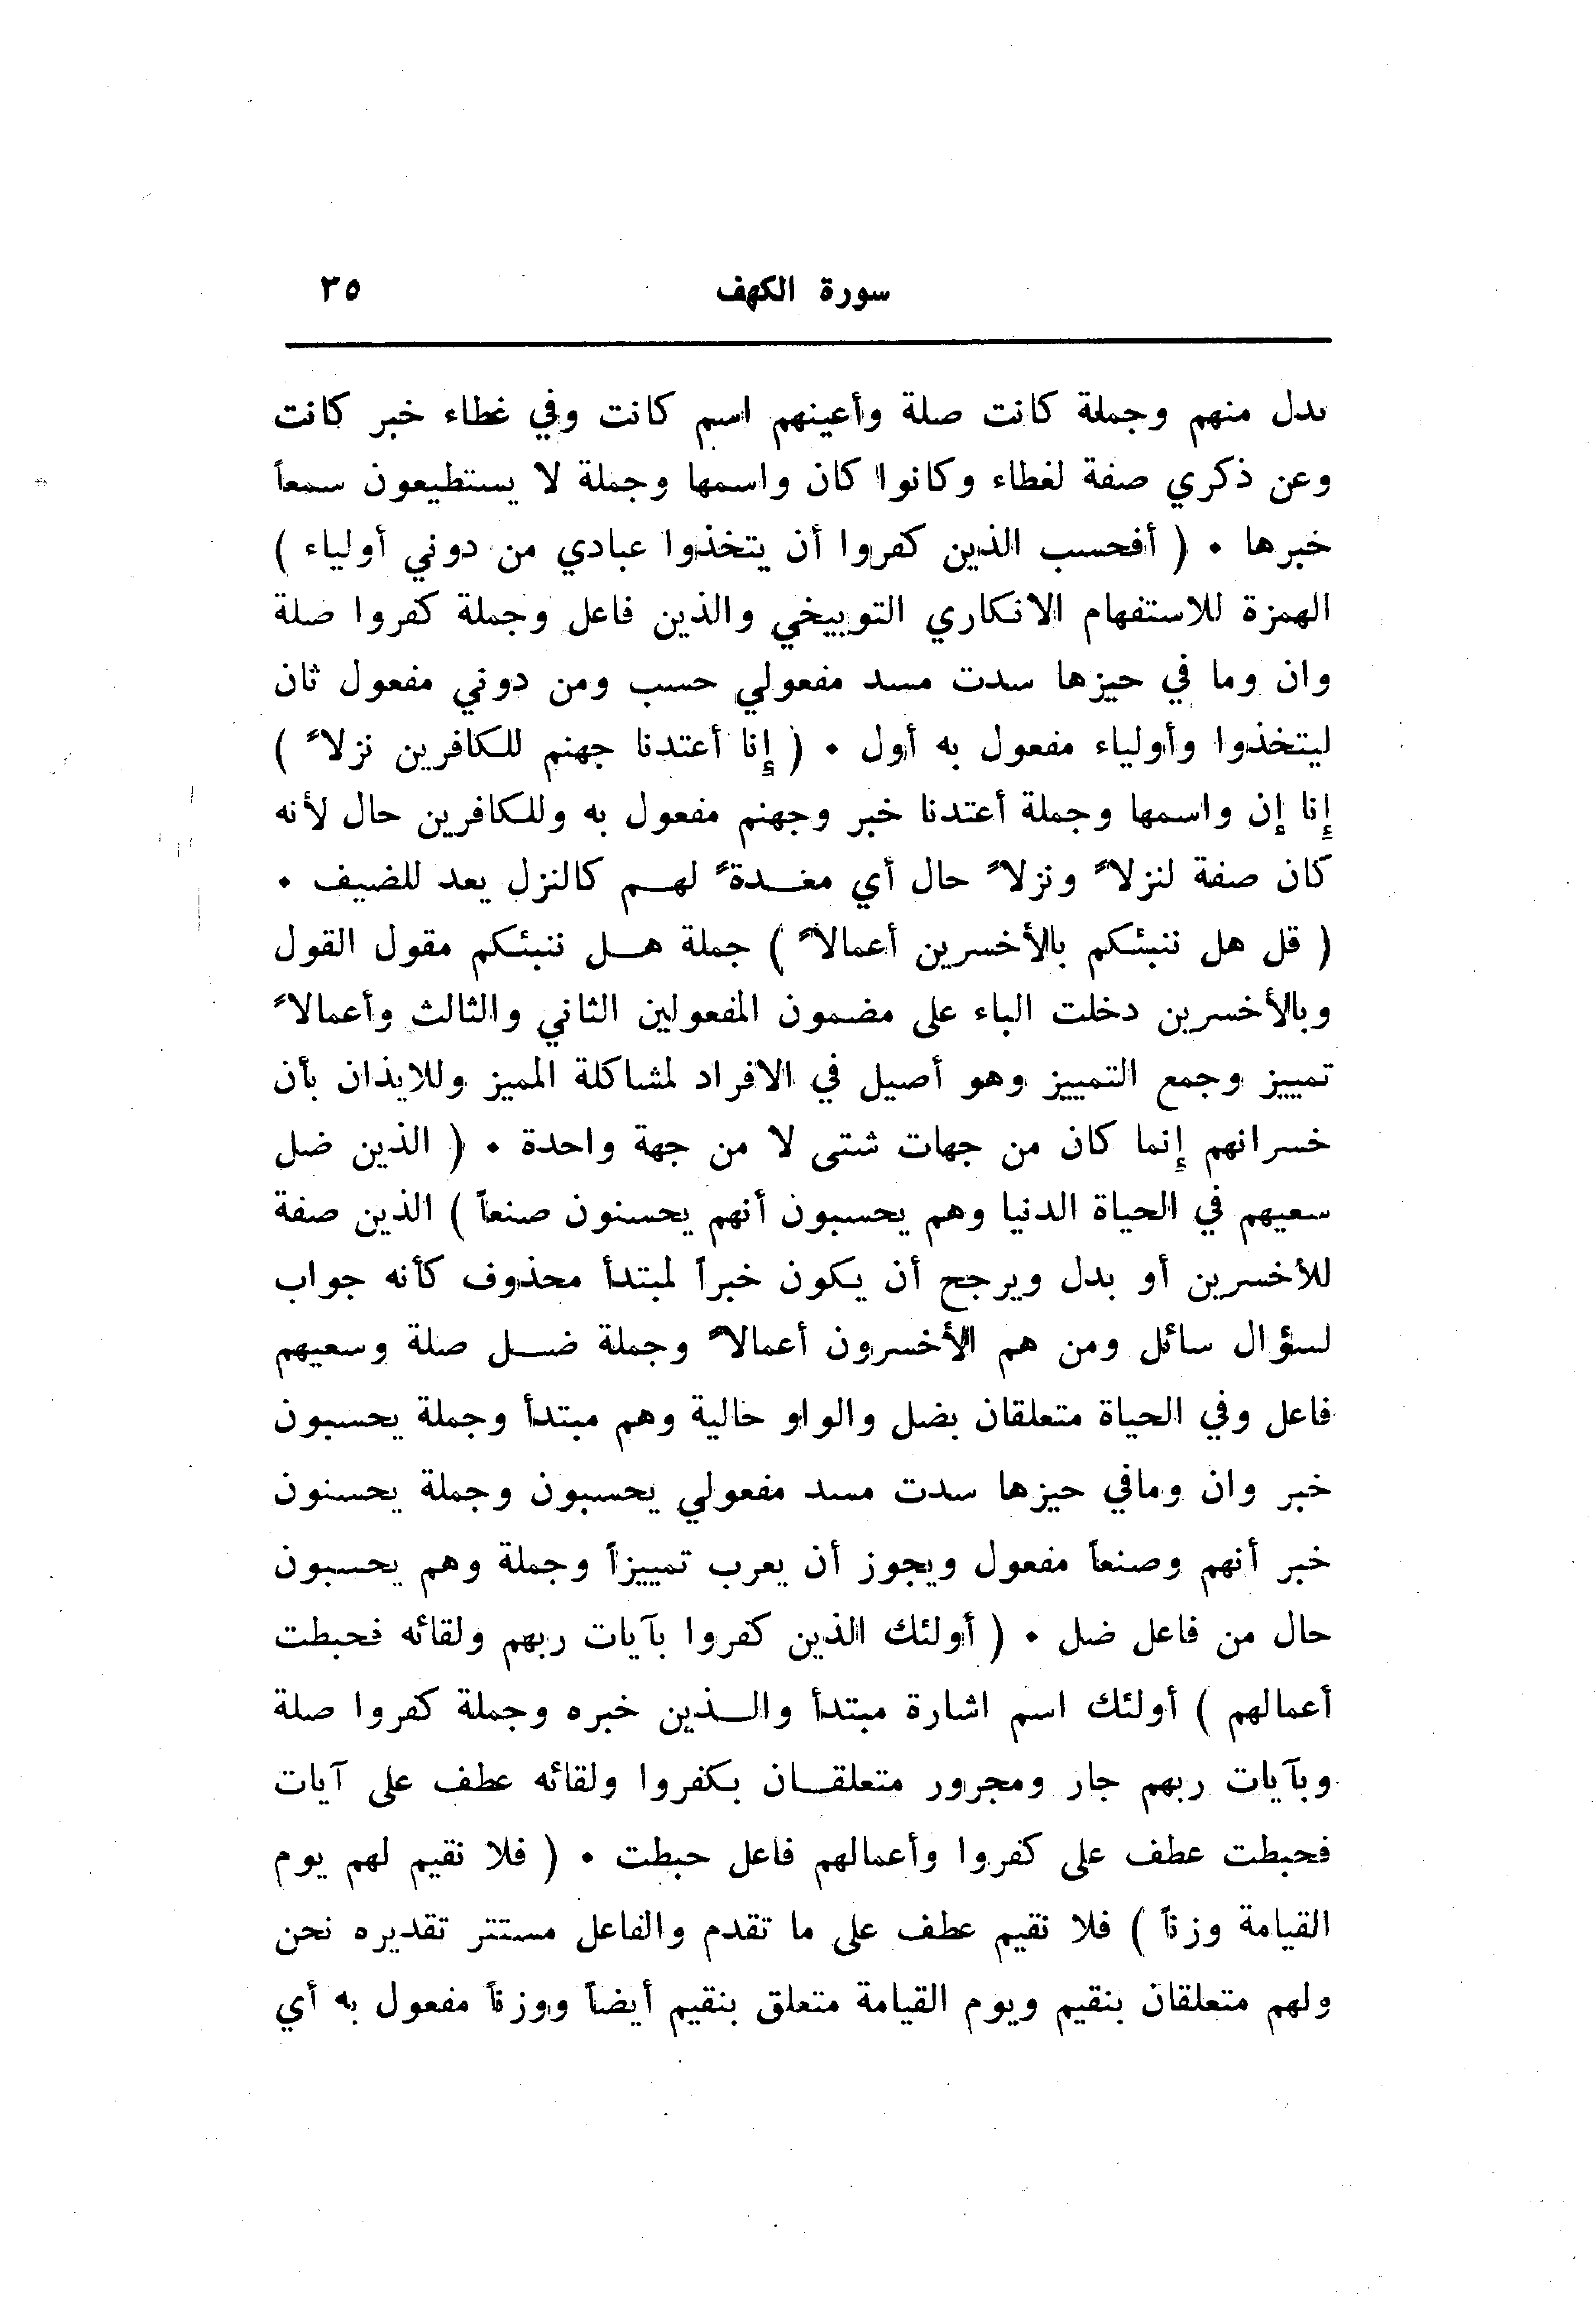 سورة الكهف ٣٥
بدل منهم وجملة كانت صلة وأعينهم اسم كانت وفي غطاء خبر كانت
وعن ذكري صفة لغطاء وكانوا كان واسمها وجملة لا يستطيعون سمعاً
خبرها ٠ ( أفحسب الذين كفروا أن يتخذوا عبادي من دوني أولياء )
الهمزة للاستفهام الانكاري التوبيخي والذين فاعل وجملة كفروا صلة
وان وما في حيزها سدت مسد مفعولي حسب ومن دوني مفعول ثان
ليتخذوا وأولياء مفعول به أول ٠ ( إنا أعتدنا جهنم للكافرين نزلاً )
إنا إن واسمها وجملة أعتدنا خبر وجهنم مفعول به وللكافرين حال لأنه
كان صفة لنزلاً ونزلاً حال أي مغدةً لهم كالنزل يعد للضيف ٠
( قل هل ننبئكم بالأخسرين أعمالاً ) جملة هل ننبئكم مقول القول
وبالأخسرين دخلت الباء على مضمون المفعولين الثاني والثالث وأعمالاً
تمييز وجمع التمييز وهو أصيل في الافراد لمشاكلة المميز وللايذان بأن
خسرانهم إنما كان من جهات شتى لا من جهة واحدة ٠ ( الذين ضل
سعيهم في الحياة الدنيا وهم يحسبون أنهم يحسنون صنعاً ) الذين صفة
للأخسرين أو بدل ويرجح أن يكون خبراً لمبتدأ محذوف كأنه جواب
لسؤال سائل ومن هم الأخسرون أعمالاً وجملة ضل صلة وسعيهم
فاعل وفي الحياة متعلقان بضل والواو حالية وهم مبتدأ وجملة يحسبون
خبر وان ومافي حيزها سدت مسد مفعولي يحسبون وجملة يحسنون
خبر أنهم وصنعاً مفعول ويجوز أن يعرب تمييزاً وجملة وهم يحسبون
حال من فاعل ضل ٠ ( أولئك الذين كفروا بآيات ربهم ولقائه فحبطت
أعمالهم ) أولئك اسم اشارة مبتدأ والذين خبره وجملة كفروا صلة
وبآيات ربهم جار ومجرور متعلقان بكفروا ولقائه عطف على آيات
فحبطت عطف على كفروا وأعمالهم فاعل حبطت ٠ ( فلا نقيم لهم يوم
القيامة وزناً ) فلا نقيم عطف على ما تقدم والفاعل مستتر تقديره نحن
ولهم متعلقان بنقيم ويوم القيامة متعلق بنقيم أيضاً ووزناً مفعول به أي